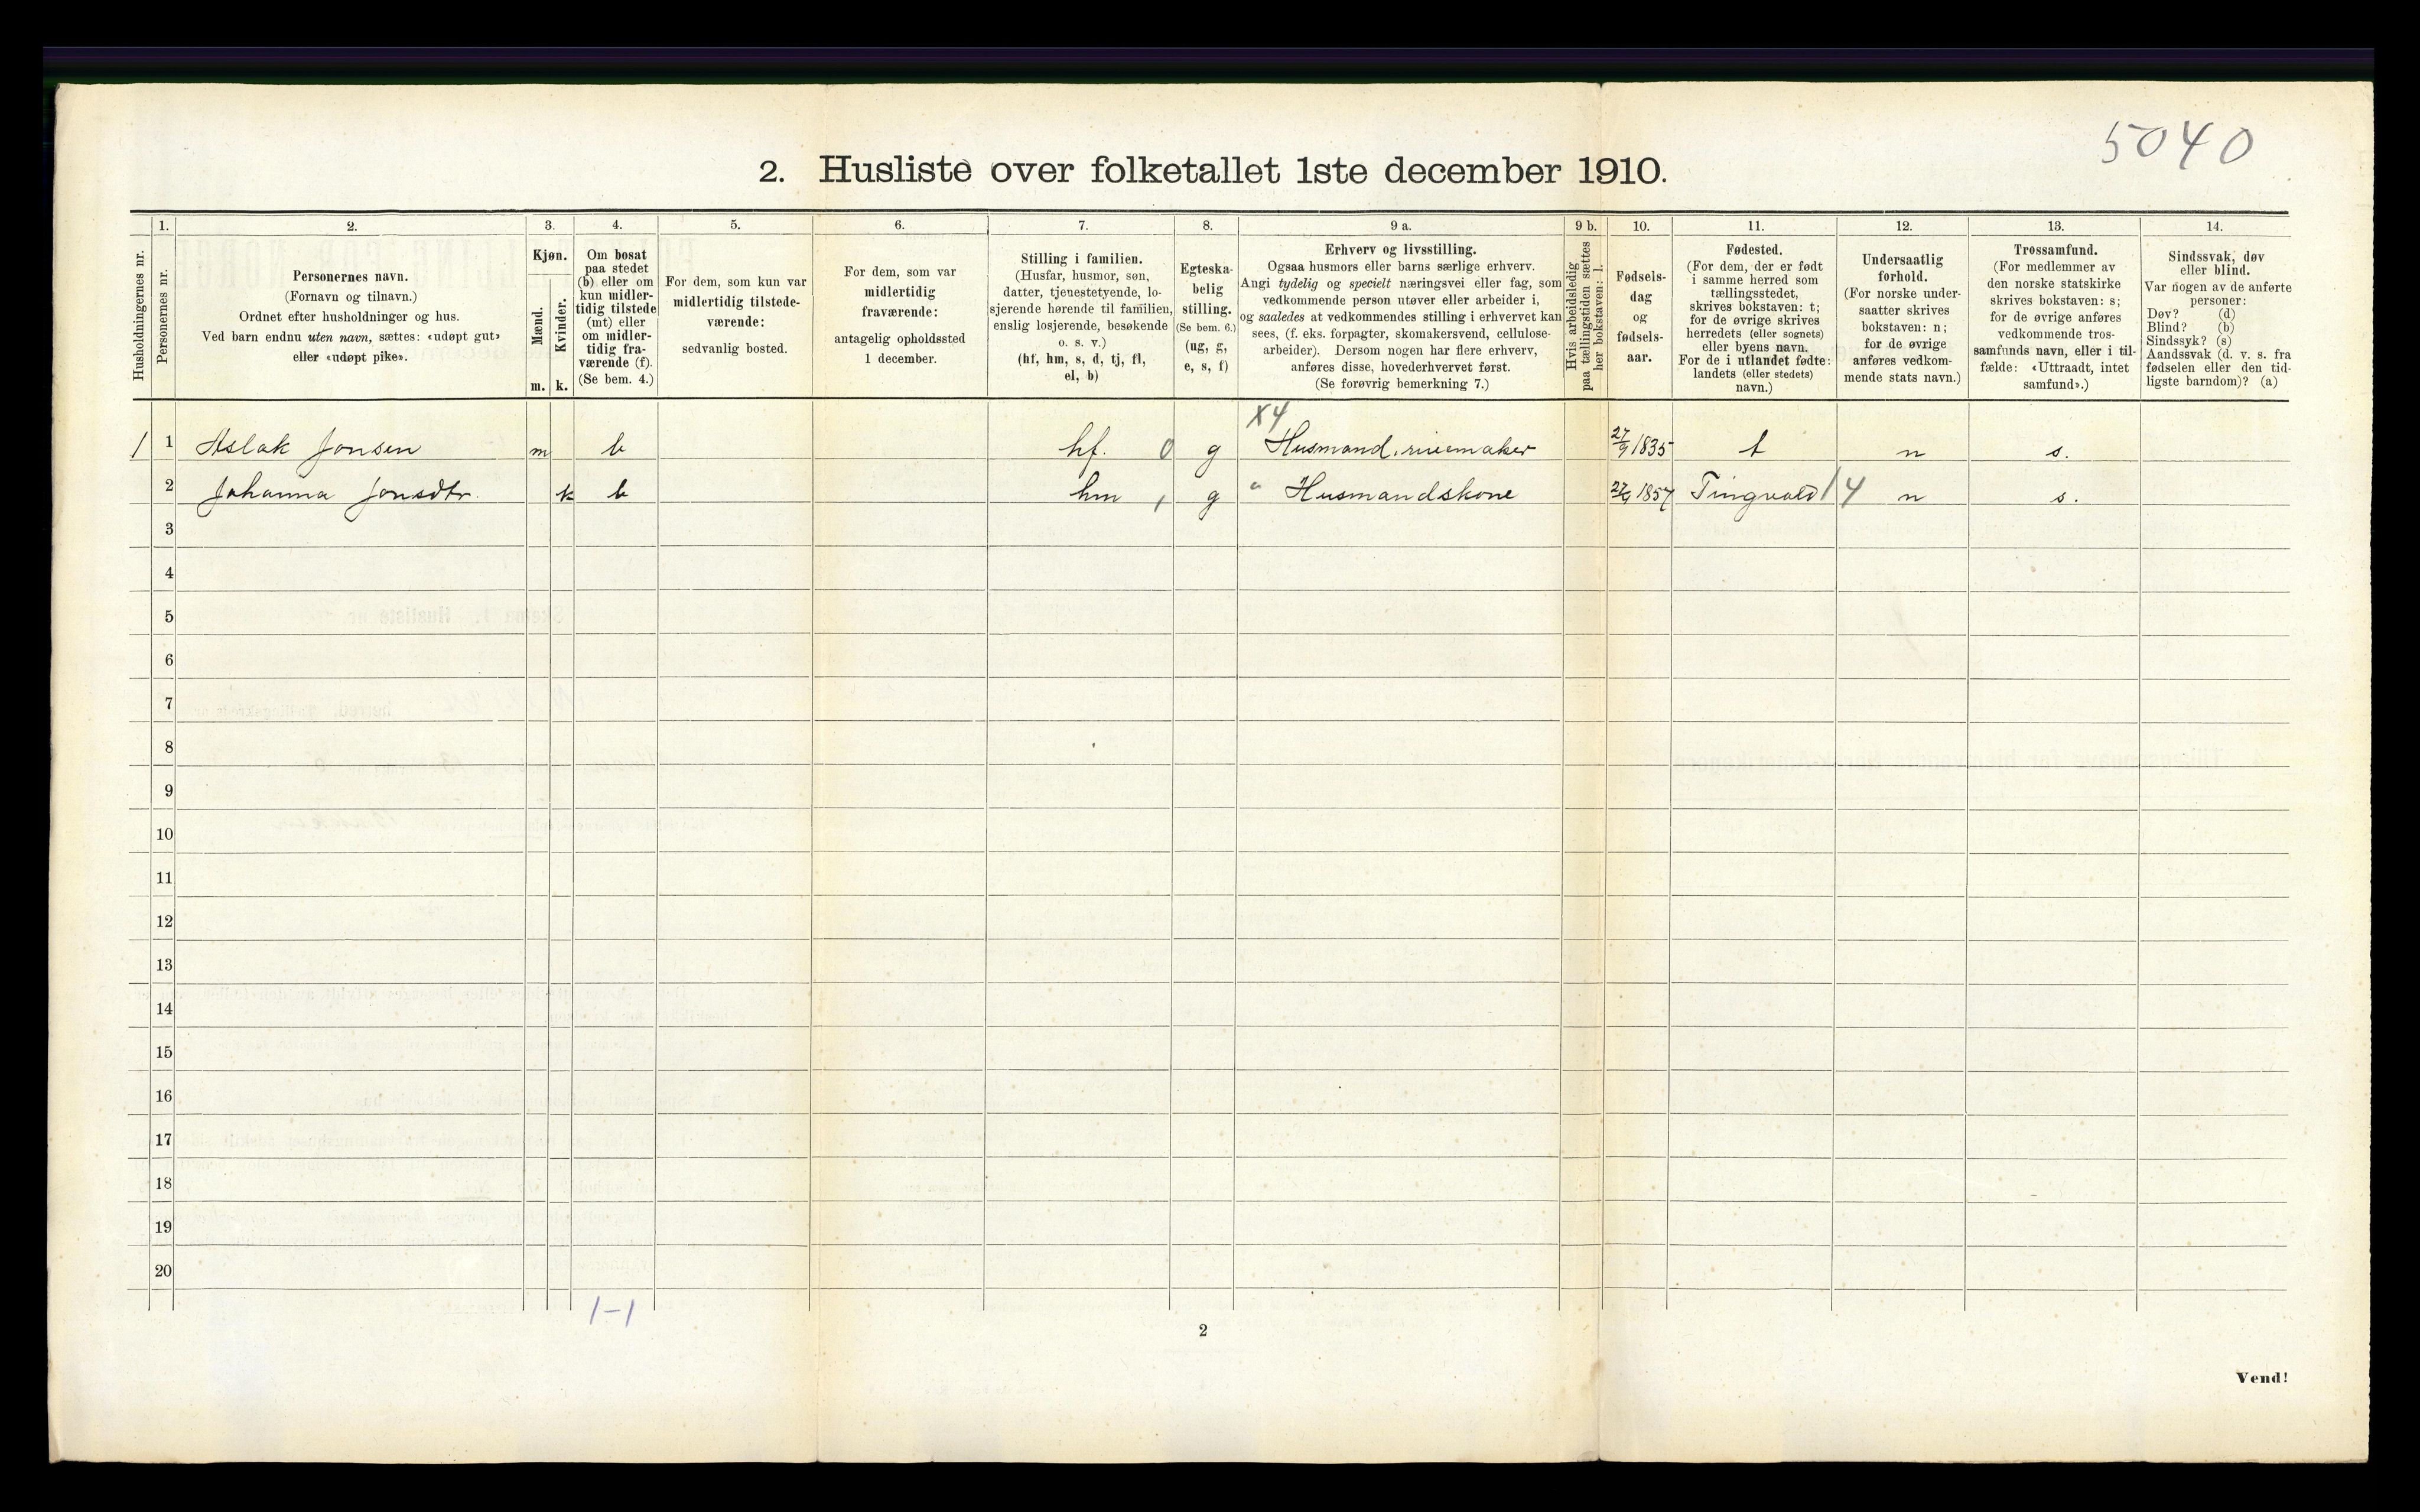 5040
2. Husliste over folketallet 1ste december 1910.
Husholdningernes nr.
1.
Personernes nr.
2.
Personernes navn.
(Fornavn og tilnavn.)
Ordnet efter husholdninger og hus.
Ved barn endnu uten navn, sættes: «udøpt gut»
eller «udøpt pike».
3.
Kjøn.
Mænd.
Kvinder.
m. k.
4.
Om bosat
paa stedet
(b) eller om
kun midler-
tidig tilstede
(mt) eller
om midler-
tidig fra-
værende (f).
(Se bem. 4.)
5.
For dem, som kun var
midlertidig tilstede-
værende:
sedvanlig bosted.
6.
For dem, som var
midlertidig
fraværende:
antagelig opholdssted
1 december.
7.
Stilling i familien.
(Husfar, husmor, søn,
datter, tjenestetyende, lo-
sjerende hørende til familien,
enslig losjerende, besøkende
o. s. v.)
(hf, hm, s, d, tj, fl,
el, b)
8.
Egteska-
belig
stilling.
(Se bem. 6.)
(ug, g,
e, s, f)
9 a.
Erhverv og livsstilling.
Ogsaa husmors eller barns særlige erhverv.
Angi tydelig og specielt næringsvei eller fag, som
vedkommende person utøver eller arbeider i,
og saaledes at vedkommendes stilling i erhvervet kan
sees, (f. eks. forpagter, skomakersvend, cellulose-
arbeider). Dersom nogen har flere erhverv,
anføres disse, hovederhvervet først.
(Se forøvrig bemerkning 7.)
9 b.
Hvis arbeidsledig
paa tællingstiden sættes
her bokstaven: l.
10.
Fødsels-
dag
og
fødsels-
aar.
11.
Fødested.
(For dem, der er født
i samme herred som
tællingsstedet,
skrives bokstaven: t;
for de øvrige skrives
herredets (eller sognets)
eller byens navn.
For de i utlandet fødte:
landets (eller stedets)
navn.)
12.
Undersaatlig
forhold.
(For norske under-
saatter skrives
bokstaven: n;
for de øvrige
anføres vedkom-
mende stats navn.)
13.
Trossamfund.
(For medlemmer av
den norske statskirke
skrives bokstaven: s;
for de øvrige anføres
vedkommende tros-
samfunds navn, eller i til-
fælde: «Uttraadt, intet
samfund».)
14.
Sindssvak, døv
eller blind.
Var nogen av de anførte
personer:
Døv? (d)
Blind? (b)
Sindssyk? (s)
Aandssvak (d. v. s. fra
fødselen eller den tid-
ligste barndom)? (a)
X4
1 1 Aslak Jonsen m b hf. 0 g Husmand, rivemaker 27/9 1835 t n s.
2 Johanna Jonsdtr. k b hm 1 g " Husmandskone 27/9 1857 Tingvold 14 n s.
3
4
5
6
7
8
9
10
11
12
13
14
15
16
17
18
19
20
1-1
2
Vend!